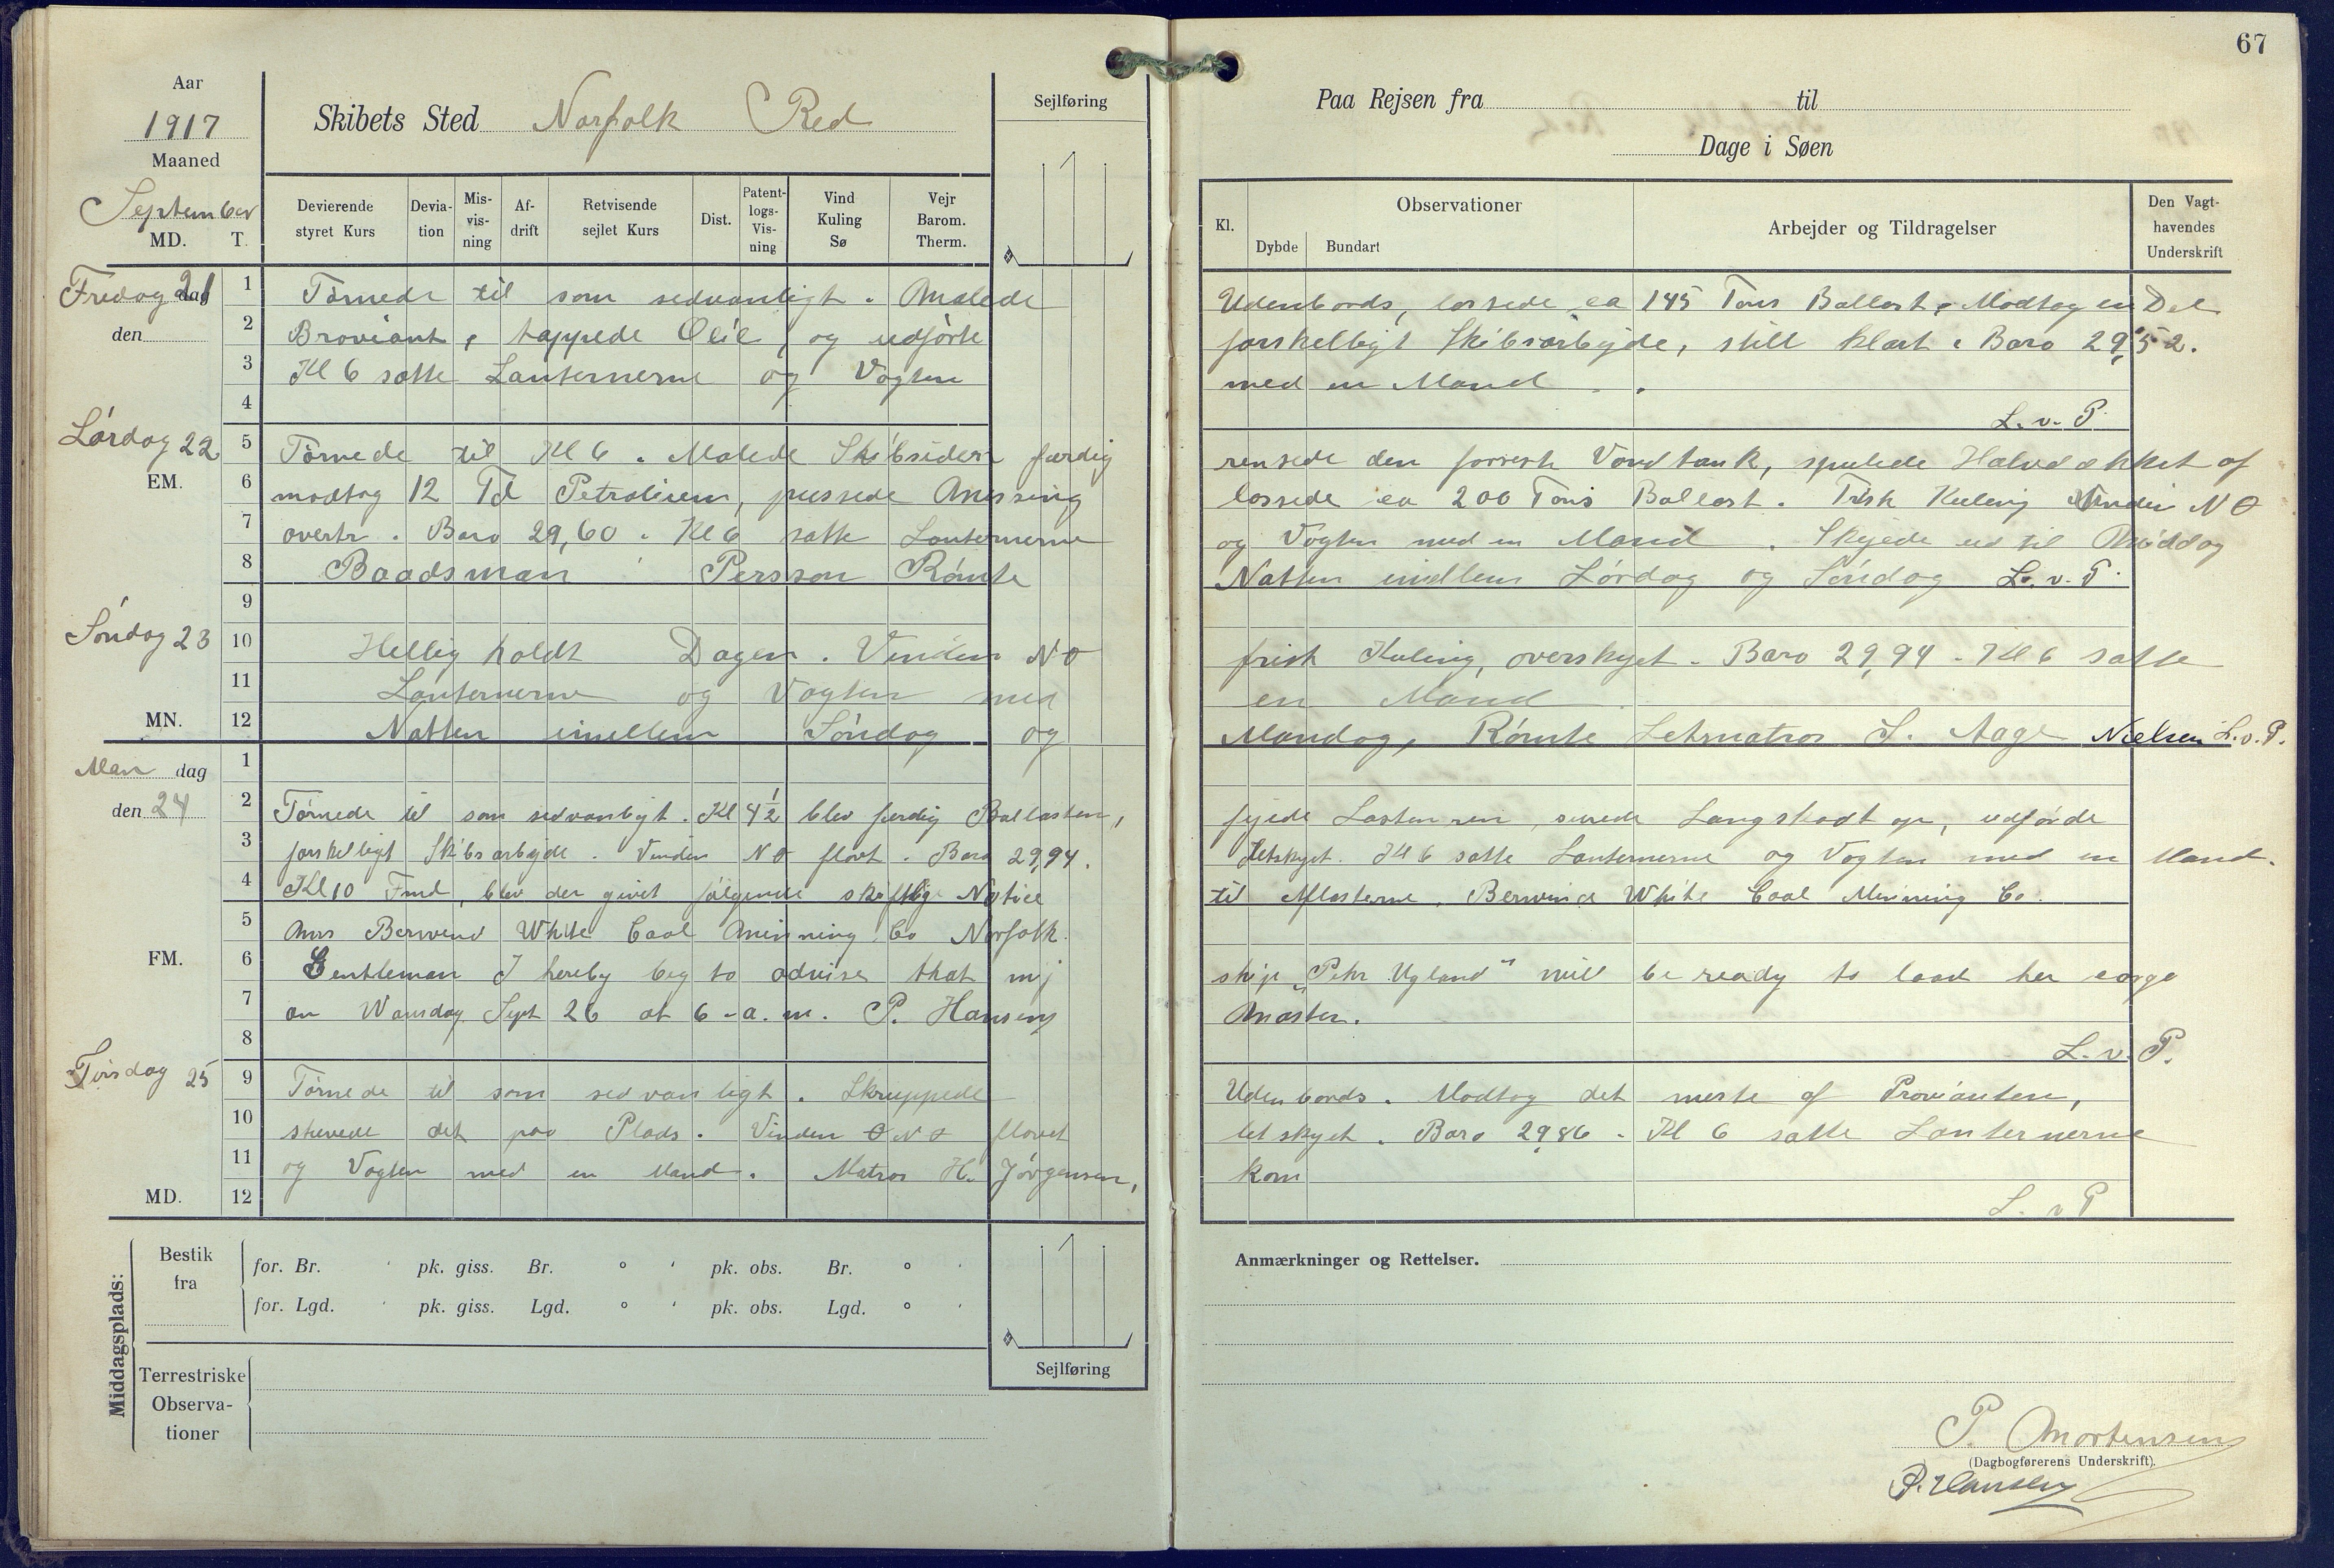 67
Aar
1917
Maaned
September
MD. T.
Skibets Sted Norfolk Red
Sejlføring
Paa Rejsen fra til
Dage i Søen
Devierende styret Kurs
Devia-tion
Mis-vis-ning
Af-drift
Retvisende sejlet Kurs
Dist.
Patent-logs-Vis-ning
Vind Kuling Sø
Vejr Barom. Therm.
Kl.
Observationer
Dybde Bundart
Arbejder og Tildragelser
Den Vagt-havendes Underskrift
Fredag 21 dag
den
1 Tørnede til som sedvanligt. Malede Udenbords, lossede ca 145 Tons Ballast, Modtog en Del
2 Broviant, tappede Olie, og udførte forskelligt Skibsarbejde, still klart. Baro 29,52.
3 Kl 6 satte Lanternerne og Vagten med en Mand.
4 L. v. P.
Lørdag 22
EM.
5 Tørnede til Kl 6. Malede Skibsiden færdig rensede den forreste Vandtank, spulede Halvdækket af
6 modtog 12 Td Petrolium, pussede Messing lossede ca 200 Tons Ballast. Frisk Kuling Vinden NO
7 overtr. Baro 29,60. Kl 6 satte Lanternerne og Vagten med en Mand. Skejede ud til Middag
8 Baadsman Persson Rømte Natten imellem Lørdag og Søndag L. v. P.
9
Søndag 23
10 Hellig holdt Dagen. Vinden NO frisk Kuling, overskyet. Baro 29,94. Kl 6 satte
11 Lanternerne og Vagten med en Mand.
MN.
12 Natten imellem Søndag og Mandag, Rømte Letmatros S. Aage Nielsen L. v. P.
Man dag
den 24
1
2 Tørnede til som sedvanligt. Kl 4½ blev færdig Ballasten, fejede Lasten ren, surede Langskodt op, udførde
3 forskelligt Skibsarbejde. Vinden NO flovt. Baro 29,94. Letskyet. Kl 6 satte Lanternerne og Vagten med en Mand.
4 Kl 10 Fmd, blev der givet følgende skriftlige Notice til Aflasterne. Berwind White Coal Minning Co.
5 Mrs Berwind White Coal Minning Co Norfolk.
FM.
6 Gentleman I hereby beg to advise that mj ship "Peter Ugland" will be ready to load her cargo
7 on Wansday Sept 26 at 6 - a. m. P. Hansen Master.
8 L. v. P.
Tirsdag 25
9 Tørnede til som sedvanligt. Skruppede Udenbords. Modtog det meste af Provianten,
10 stuvede det paa Plads. Vinden O NO flovet let skyet. Baro 29,86. Kl 6 satte Lanternerne
11 og Vagten med en Mand. Matros H. Jørgensen, kom
MD.
12 L. v P
Middagsplads:
Bestik fra
for. Br. ' pk. giss. Br. ° ' pk. obs. Br. ° '
for. Lgd. ' pk. giss. Lgd. ° ' pk. obs. Lgd. ° '
Sejlføring
Terrestriske Observa-tioner
Anmærkninger og Rettelser.
P. Mortensen
(Dagbogførerens Underskrift).
P. Hansen